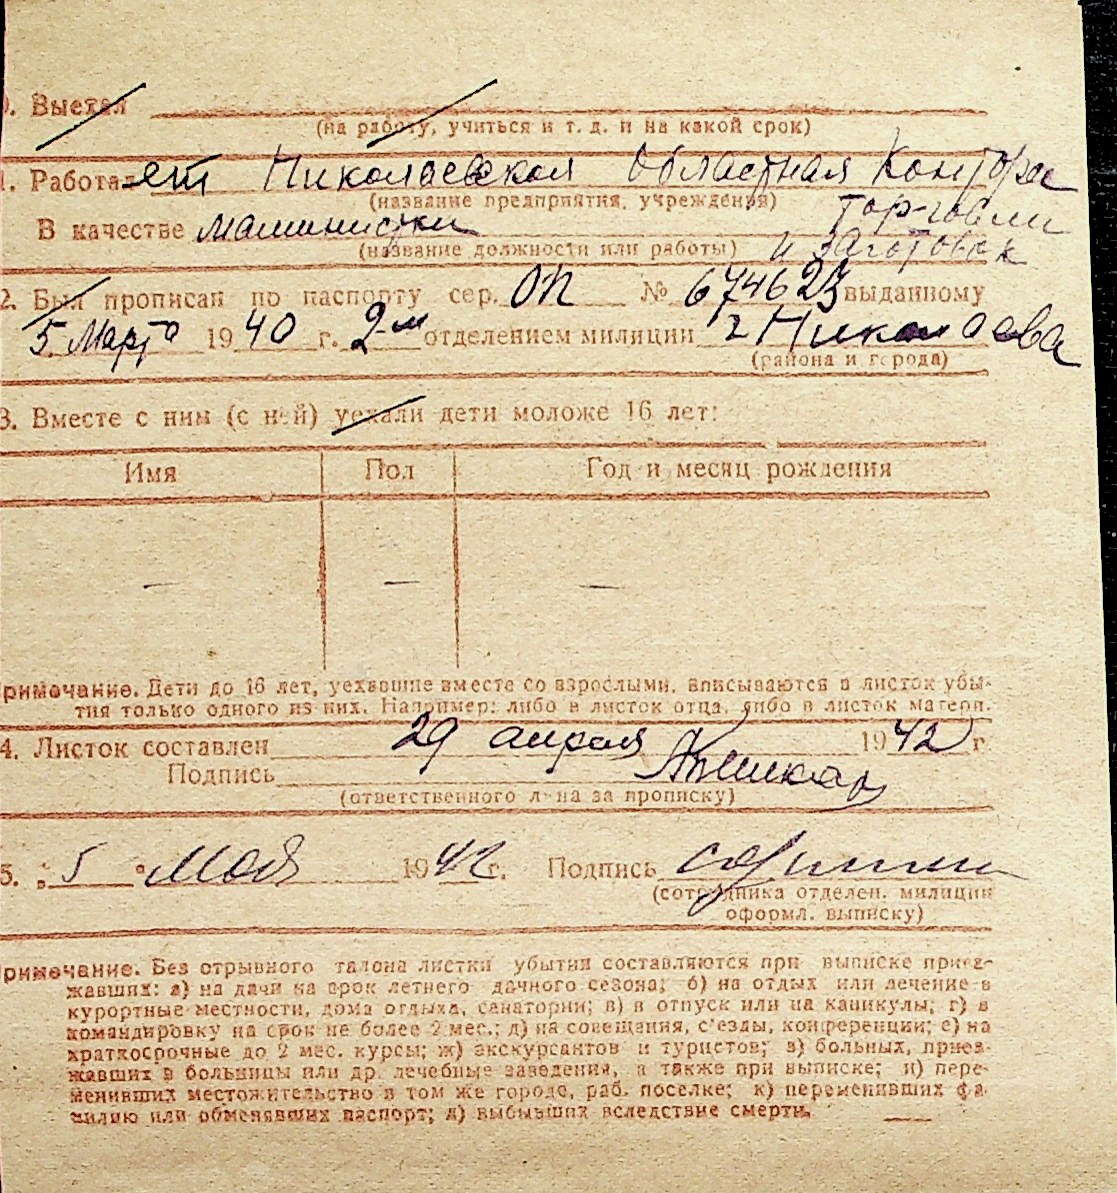 Выехал
(на работу, учиться и т. д. и на какой срок)
1. Работает Николаевская Областная Контора
(название предприятия, учреждения) Тор-говли
В качестве машинистки
(название должности или работы) и заготовок
2. Был прописан по паспорту сер. ОП № 674623 выданному
5 Марта 1940 г. 2-м отделением милиции г Николаева
(района и города)
3. Вместе с ним (с ней) уехали дети моложе 16 лет:
Имя Пол Год и месяц рождения
— — —
Примечание. Дети до 16 лет, уехавшие вместе со взрослыми, вписываются в листок убы-
тия только одного из них. Например: либо в листок отца, либо в листок матери.
4. Листок составлен 29 апреля 1942 г.
Подпись
(ответственного л-на за прописку)
5. "5" Мая 1942 г. Подпись
(сотрудника отделен. милиции
оформл. выписку)
Примечание. Без отрывного талона листки убытия составляются при выписке приез-
жавших: а) на дачи на срок летнего дачного сезона; б) на отдых или лечение в
курортные местности, дома отдыха, санатории; в) в отпуск или на каникулы; г) в
командировку на срок не более 2 мес.; д) на совещания, с'езды, конференции; е) на
краткосрочные до 2 мес. курсы; ж) экскурсантов и туристов; з) больных, приез-
жавших в больницы или др. лечебные заведения, а также при выписке; и) пере-
менивших местожительство в том же городе, раб. поселке; к) переменивших фа-
милию или обменявших паспорт; л) выбывших вследствие смерти.